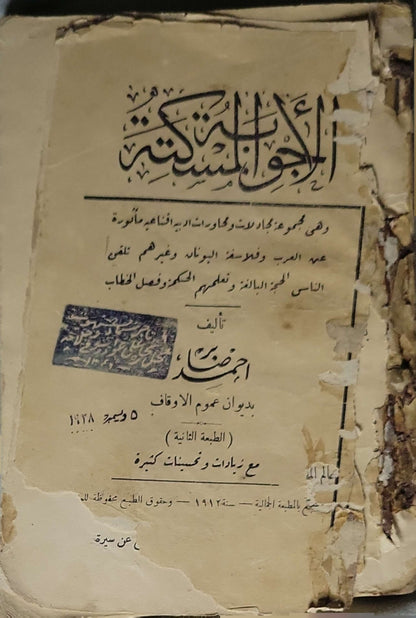 الأجوبة المسكتة
وهى مجموعة مجادلات ومحاورات ادبية اقناعية مأثورة
عن العرب وفلاسفة اليونان وغيرهم تلقى
الناس الحجة البالغة وتعلمهم الحكمة وفصل الخطاب
تأليف
احمد صابر
بديوان عموم الاوقاف
٥ ديسمبر ١٩٢٨
(الطبعة الثانية)
مع زيادات وتحسينات كثيرة
بالمطبعة الجمالية — سنة ١٩١٢ — وحقوق الطبع محفوظة
عن سيرة